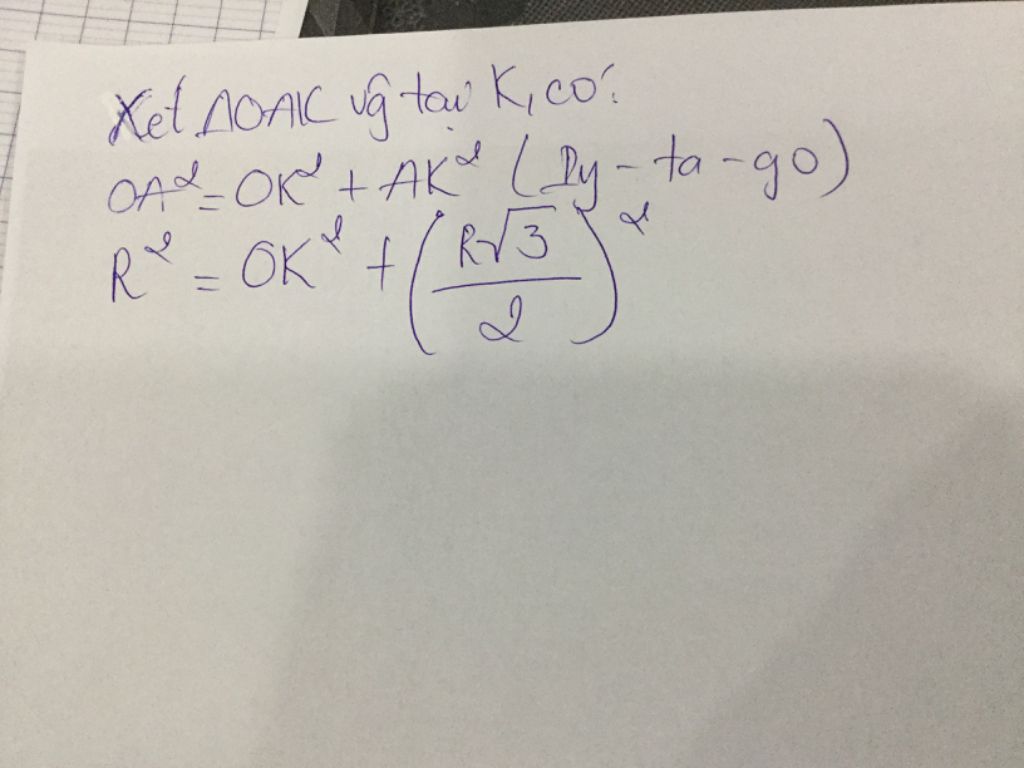 Xét ΔOAK vg tại K, có:
OA² = OK² + AK² (Py-ta-go)
R² = OK² + (R√3/2)²